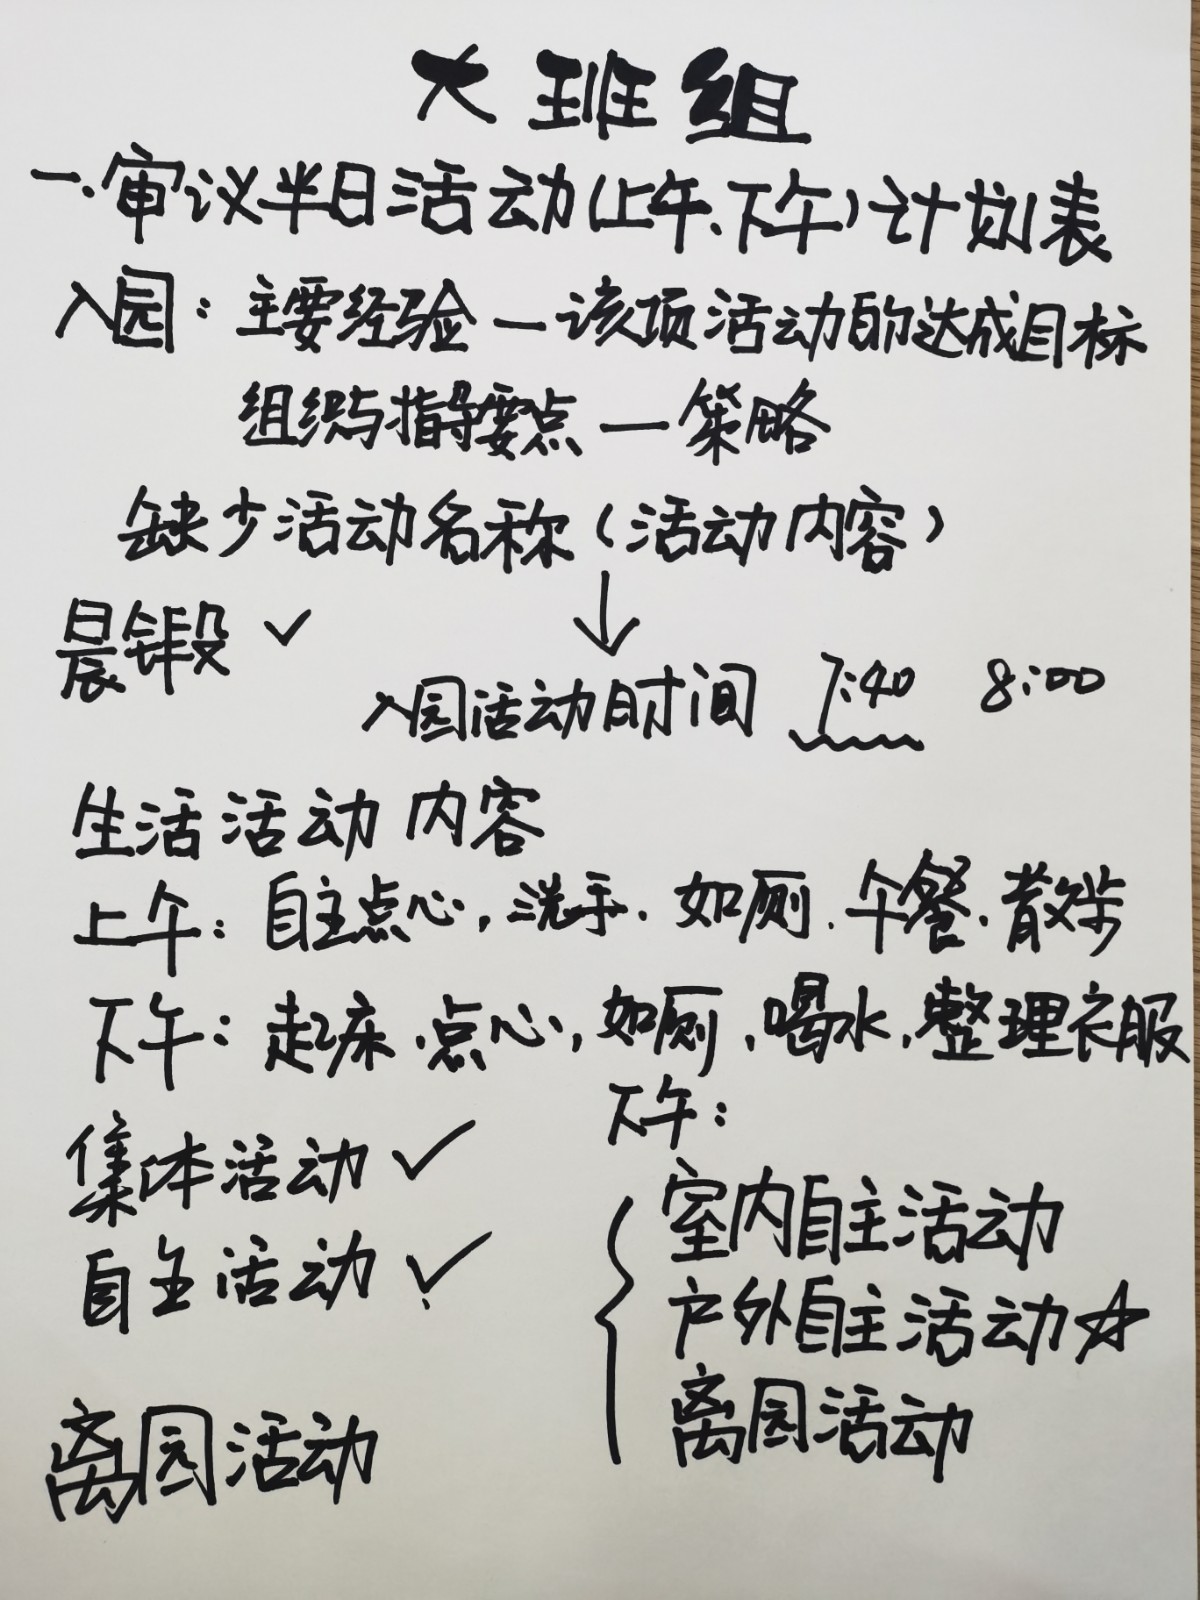 大班组
一、审议半日活动(上午、下午)计划表
入园：主要经验—该项活动的达成目标
组织与指导要点—策略
缺少活动名称(活动内容)
晨锻 ✓
↓
入园活动时间 7:40 8:00
生活活动内容
上午：自主点心，洗手、如厕、午餐、散步
下午：起床、点心，如厕，喝水，整理衣服
下午：
集体活动 ✓
室内自主活动
自主活动 ✓
户外自主活动☆
离园活动
离园活动